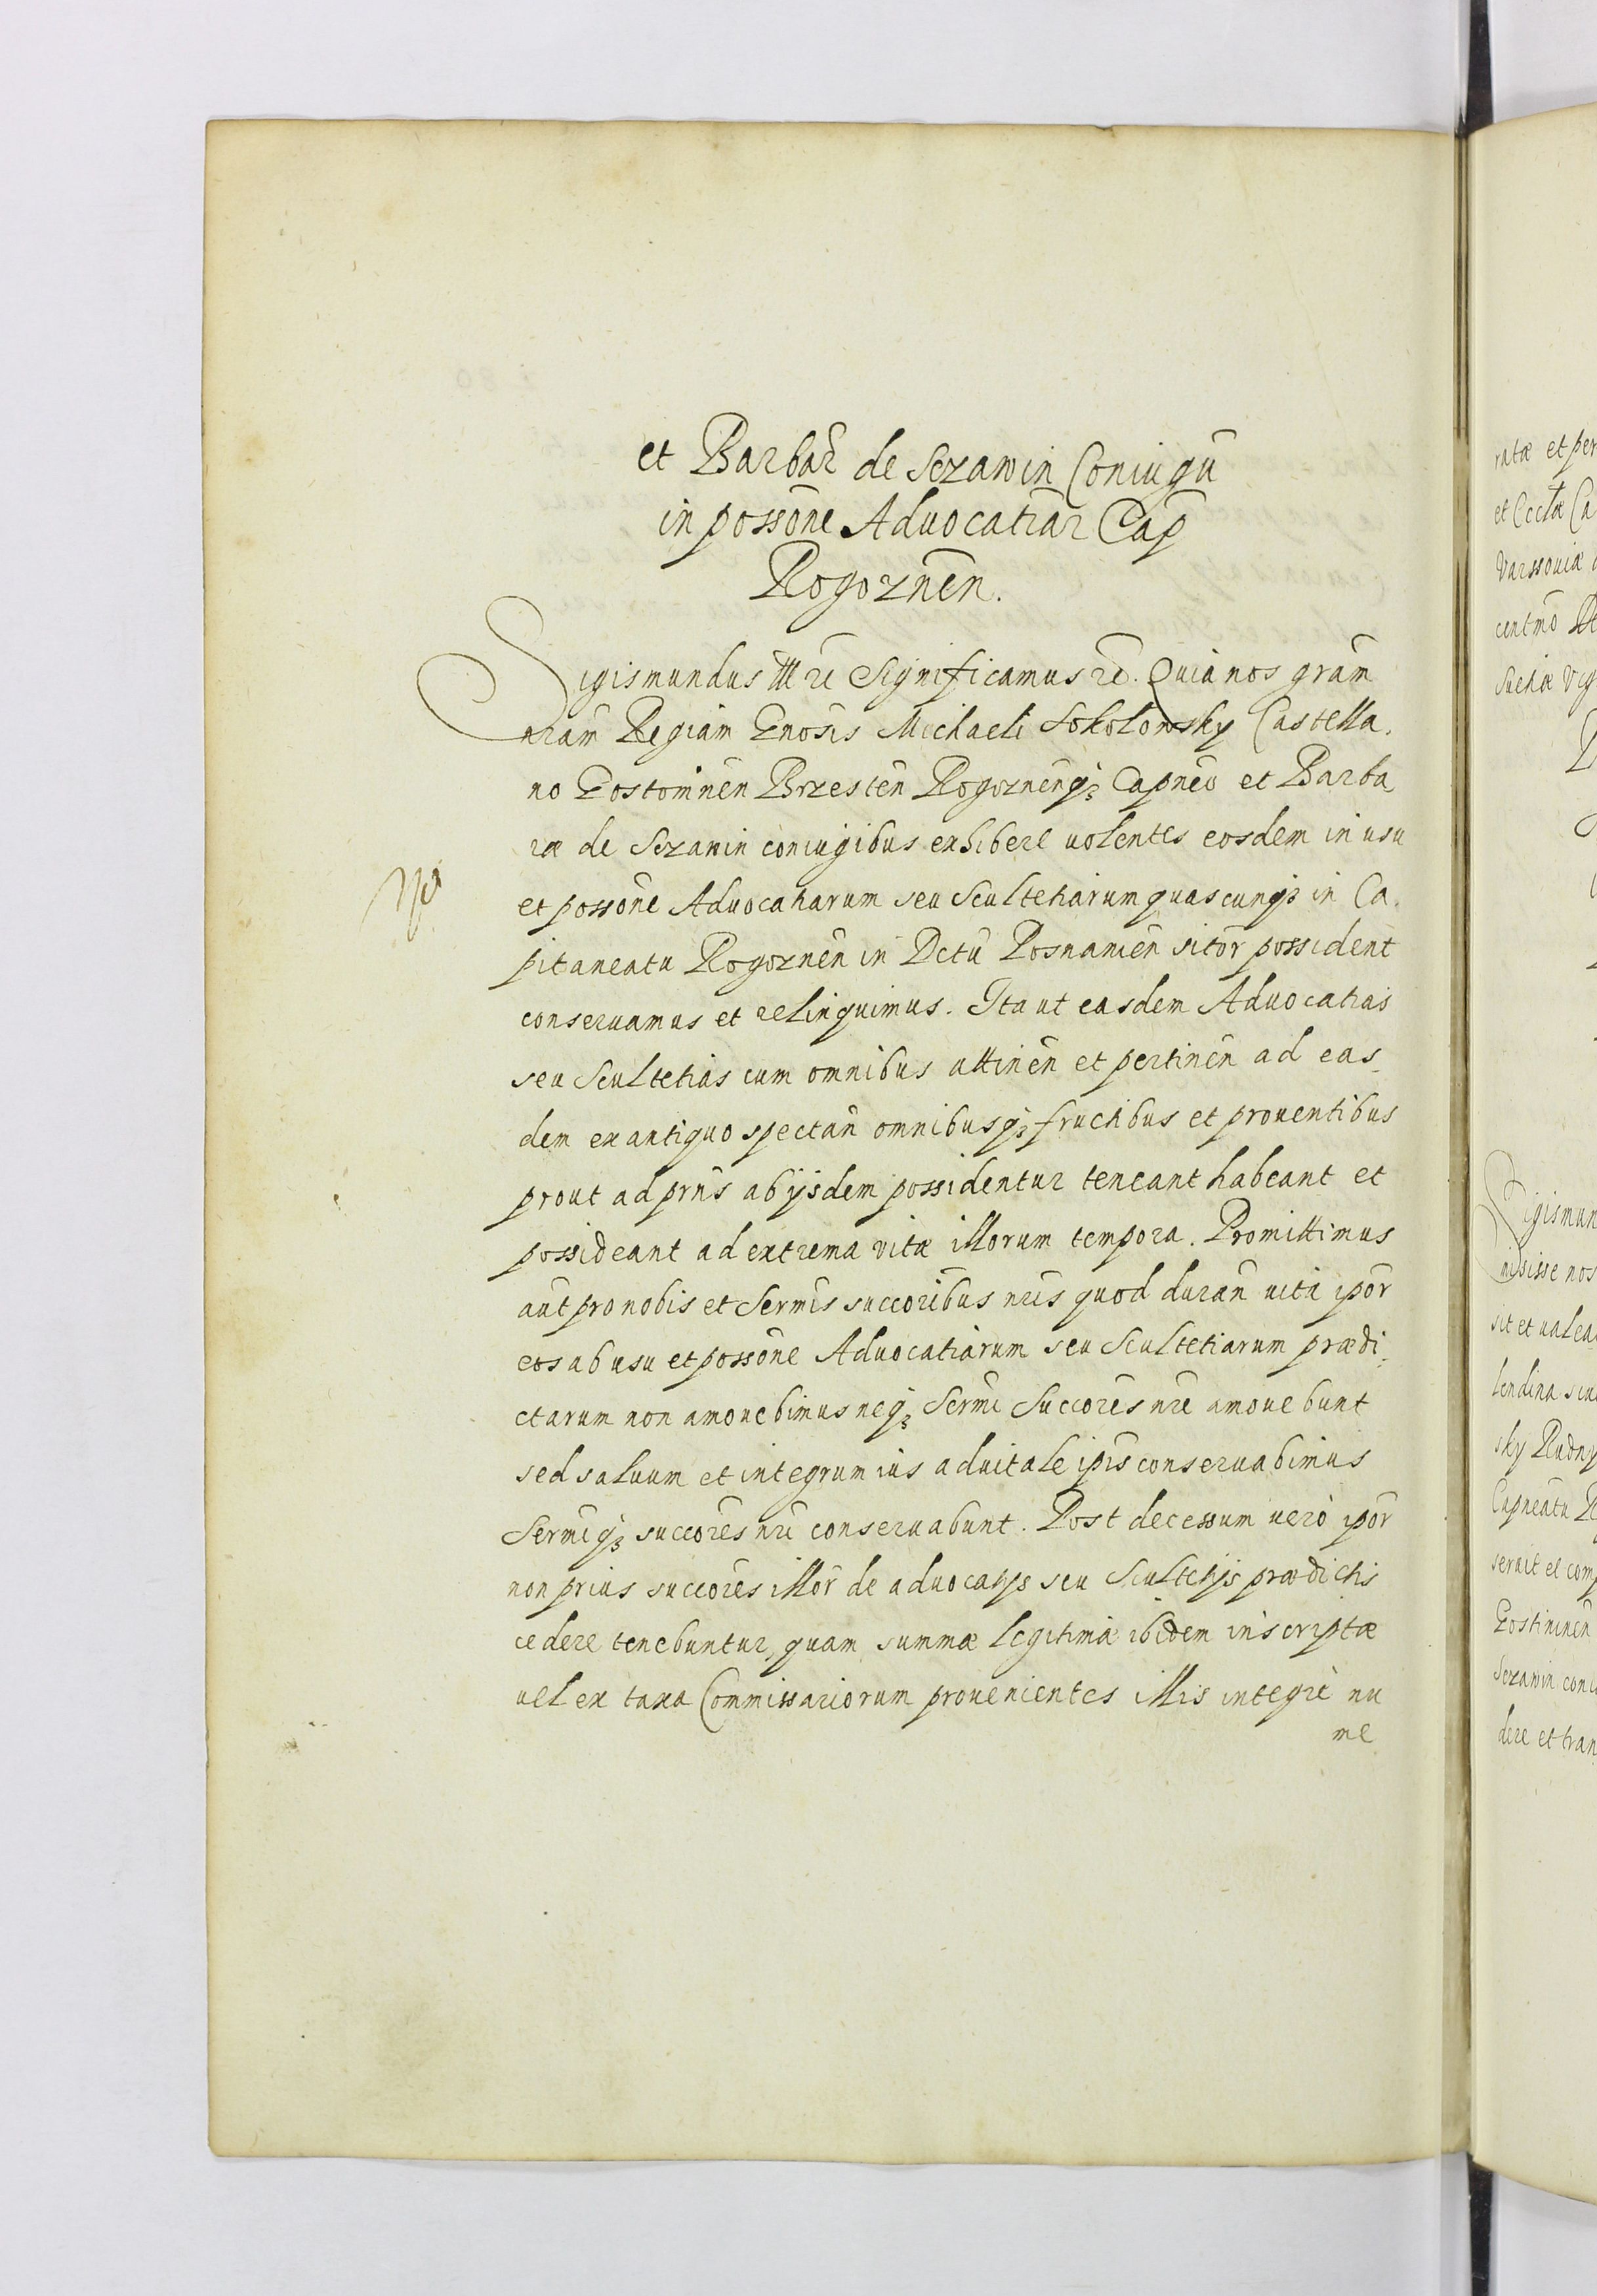 et Barbar̃ de Sczawin Coniugũ
in possõne Aduocatiar̃ Cap̃
Rogoznen̄.
Sigismundus III rc̃ Significamus rc̃. Quia nos grãm
nrãm Regiam Gnosis Michaeli Sokolowsky Castella,
no Gostominen̄ Brzesten̄ Rogoznen̄qз Capneo et Barba
ræ de Sczawin coniugibus exhibere uolentes eosdem in usu
et possõne Aduocatiarum seu Scultetiarum quascunqз in Ca,
pitaneatu Rogoznen̄ in Dctũ Posnanien̄ sitor̃ possident
conseruamus et relinquimus. Ita ut easdem Aduocatias
seu Scultetias cum omnibus attinen̄ et pertinen̄ ad eas
dem ex antiquo spectañ omnibusqз fructibus et prouentibus
prout ad prñs ab ijsdem possidentur teneant habeant et
possideant ad extrema vitæ illorum tempora. Promittimus
aũt pro nobis et Sermis succoribus nris quod durañ uita ipor̃
eos ab usu et possõne Aduocatiarum seu Scultetiarum prædi,
ctarum non amouebimus neqз Sermi Succores nri amouebunt
sed saluum et integrum ius aduitale ipis conseruabimus
Sermiqз succores nri conseruabunt. Post decessum uerò ipor̃
non prius succores illor̃ de aduocatijs seu Scultetijs prædictis
cedere tenebuntur, quam summæ legitimæ ibidem inscriptæ
uel ex taxa Commissariorum prouenientes illis integrè nu
me
ratæ et per
et Ccctæ Ca
Varssouiæ
centmo
Sueciæ
Sigismun
sit et ualea
sky Rudny
Capneatu
seruit et comp
Gostininen̄
Sczawin coni
dere et tran